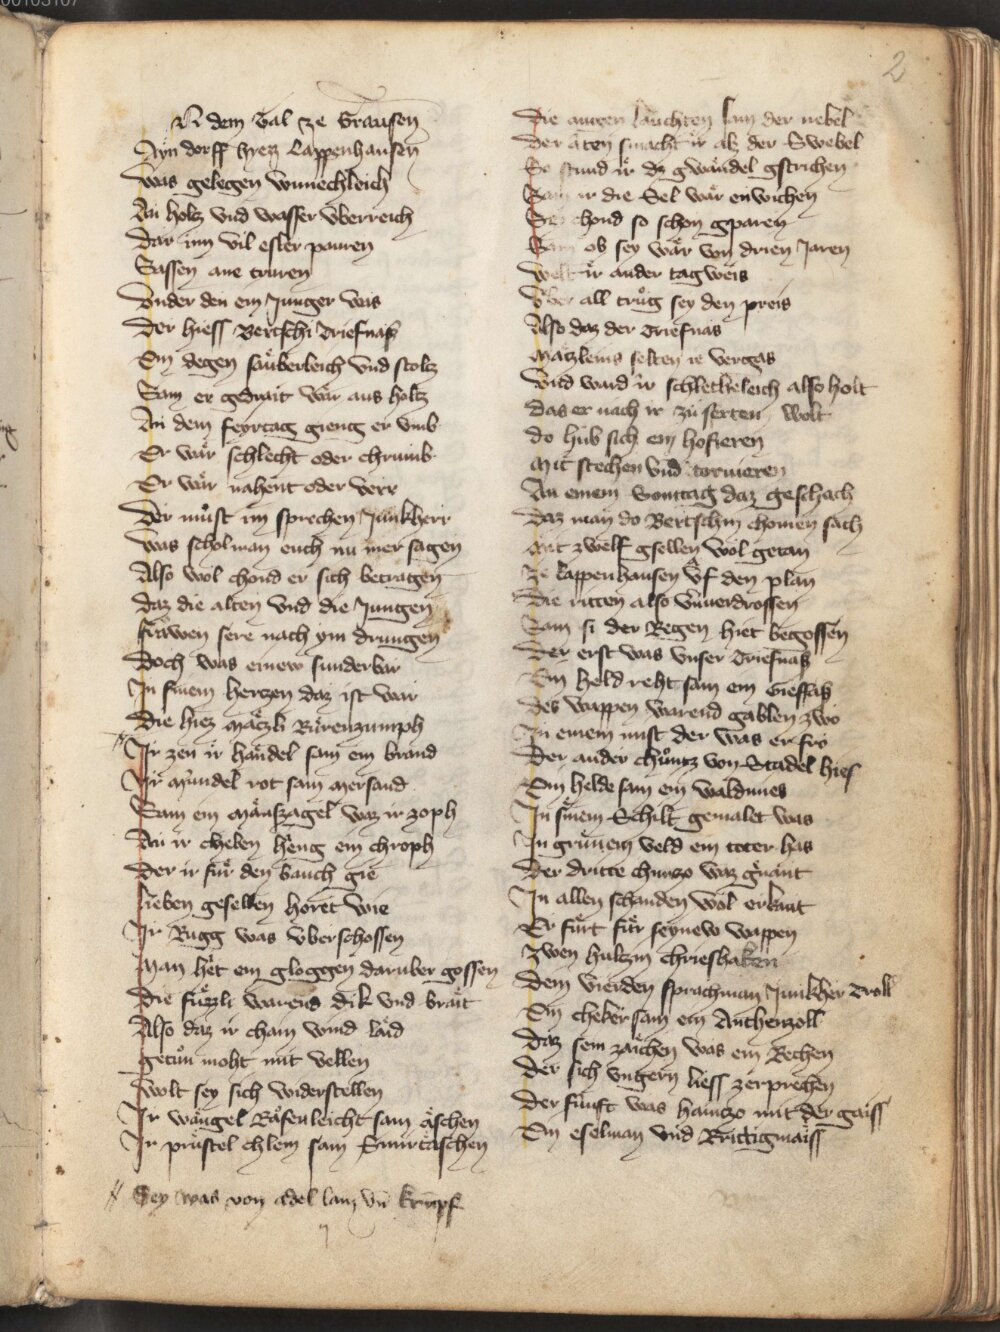 00103107
2
N dem Tal ze Grausen
Ayn dorff hyesz Lappenhausen
Was gelegen wunnechleich
An holtz vnd wasser vberreich
Dar inn vil esler pauren
Sassen ane truren
Vnder den ein Junger was
Der hiess Bertschi Driefnas
Ein degen säuberleich vnd stoltz
Sam er gedrait wär aus holtz
An dem feyrtag gieng er vmb
Er wär schlecht oder chrumb
Er wär nahent oder verr
Der müst im sprechen Junkherr
Was schol man euch nu mer sagen
Also wol chond er sich betragen
Daz die alten vnd die Jungen
frawen sere nach ym drungen
Doch was einew sunderbar
In sinem hertzen daz ist war
Die hiez Mätzli Rürenzumph
Ir zen ir händel sam ein brand
Ir mündel rot sam mersand
Sam ein mäuszagel waz ir zoph
An ir chelen hieng ein chroph
Der ir für den bauch gie
Lieben gesellen horet wie
Ir Rugg was vberschossen
Man het ein gloggen daruber gossen
Die füzzli warend dik vnd brait
Also daz ir cham wind laid
getün moht mit vellen
Wolt sey sich widerstellen
Ir wängel Räsenleicht sam äschen
Ir prüstel chlein sam Smirtäschen
Sey was von adel lam vn krumpf
Die augen lauchten sam der nebel
Der äten smacht ir als der Swebel
So stund ir dz gwändel gstrichen
Sam ir die Sel wär enwichen
Sey chond so schon gparen
Sam ob sey wär von drien Jaren
Welt ir ander tagweis
Vber all trüg sey den preis
Also daz der Triefnas
Mätzleins selten ie vergas
Vnd ward ir schlechtleich also holt
Das er nach ir zu serten wolt
Do hüb sich ein hofieren
Mit stechen vnd tornieren
An einem Sonntag daz geschach
Daz man do Bertschin chomen sach
Mit zwelf gsellen wol getan
Ze Lappenhausen vf den plan
Die ritten also vnuerdrossen
Sam si der Regen hiet begossen
Der erst was vnser Driefnas
Ein held reht sam ein Giessfas
Des wappen warend gablen zwo
In einem mist der was er fro
Der ander chüntz von Stadel hies
Ein helde sam ein waldmies
In sinem Schilt gemalet was
In grünem veld ein toter has
Der dritte chuntzo waz gnant
In allen schanden wol erkant
Er fürt für seynew wappen
Zwen hultzin chrieshaken
Dem vierden sprach man Junkher Troll
Ein cheker sam ein Anthenzoll
Daz sein zaichen was ein Rechen
Der sich vngern liess zerprechen
Der fünft was haintzo mit der gaiss
Ein eselman vnd Brittigmaiss